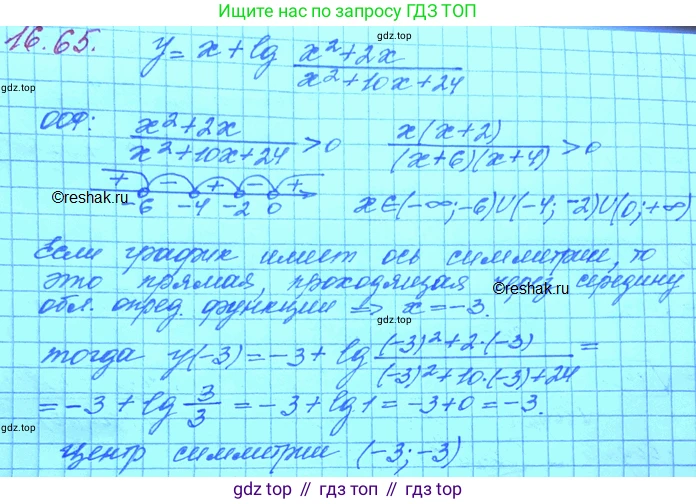 Ищите нас по запросу ГДЗ ТОП
16.65.
y = x + lg (x²+2x)/(x²+10x+24)
gdz.top
ООФ: (x²+2x)/(x²+10x+24) > 0 x(x+2)/((x+6)(x+4)) > 0
+ − + − +
-6 -4 -2 0 x∈(-∞;-6)∪(-4;-2)∪(0;+∞)
©reshak.ru ©reshak.ru
Если график имеет ось симметрии, то
это прямая, проходящая через середину
обл. опред. функции => x=-3.
©reshak.ru
gdz.top
тогда y(-3) = -3 + lg ((-3)²+2·(-3))/((-3)²+10·(-3)+24) =
= -3 + lg 3/3 = -3 + lg 1 = -3+0 = -3.
gdz.top gdz.top
центр симметрии (-3;-3)
gdz.top // гдз.топ // gdz.top